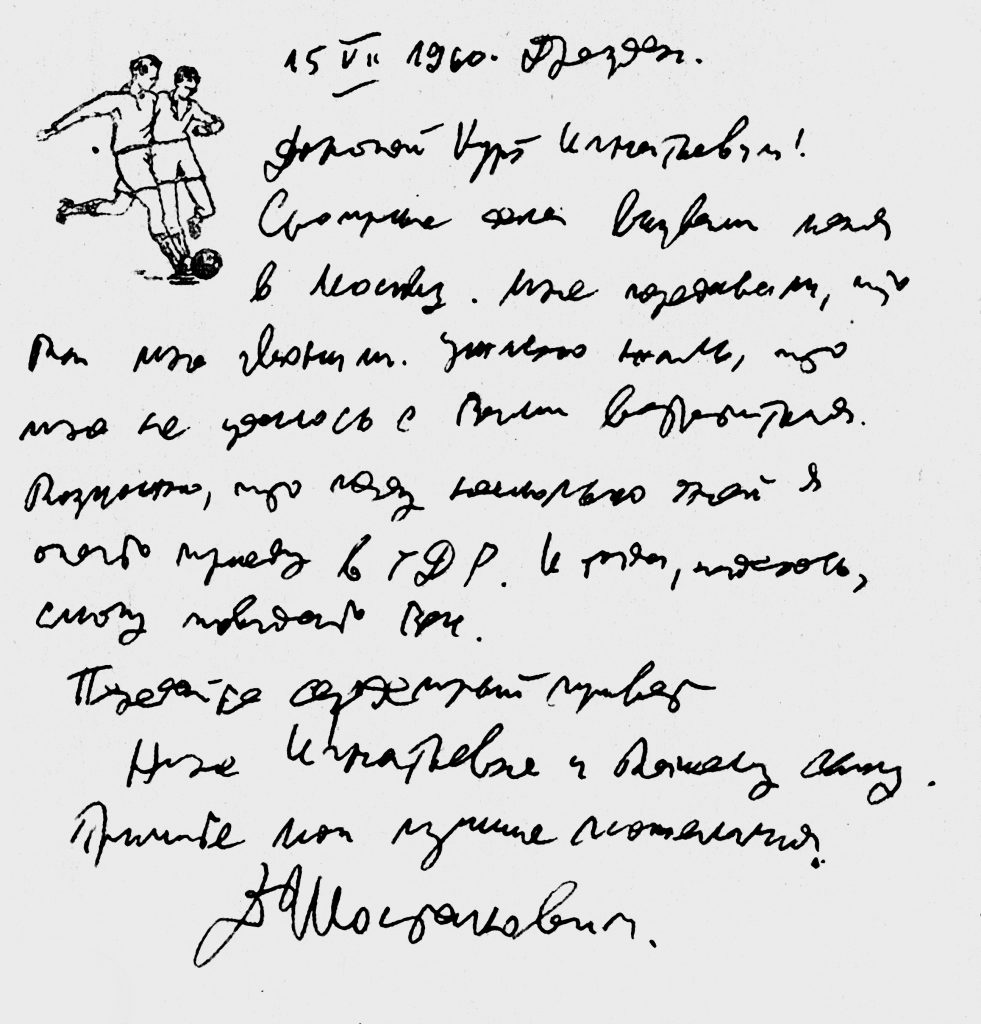 15 VII 1960. Дрезден.
Дорогой Курт Игнатьевич!
Срочные дела вызвали меня
в Москву. Мне передавали, что
Вы мне звонили. Ужасно жаль, что
мне не удалось с Вами встретиться.
Возможно, что через несколько дней я
опять приеду в ГДР. И тогда, надеюсь,
смогу повидать Вас.
Передайте сердечный привет
Нине Игнатьевне и Вашему сыну.
Примите мои лучшие пожелания.
Д Шостакович.